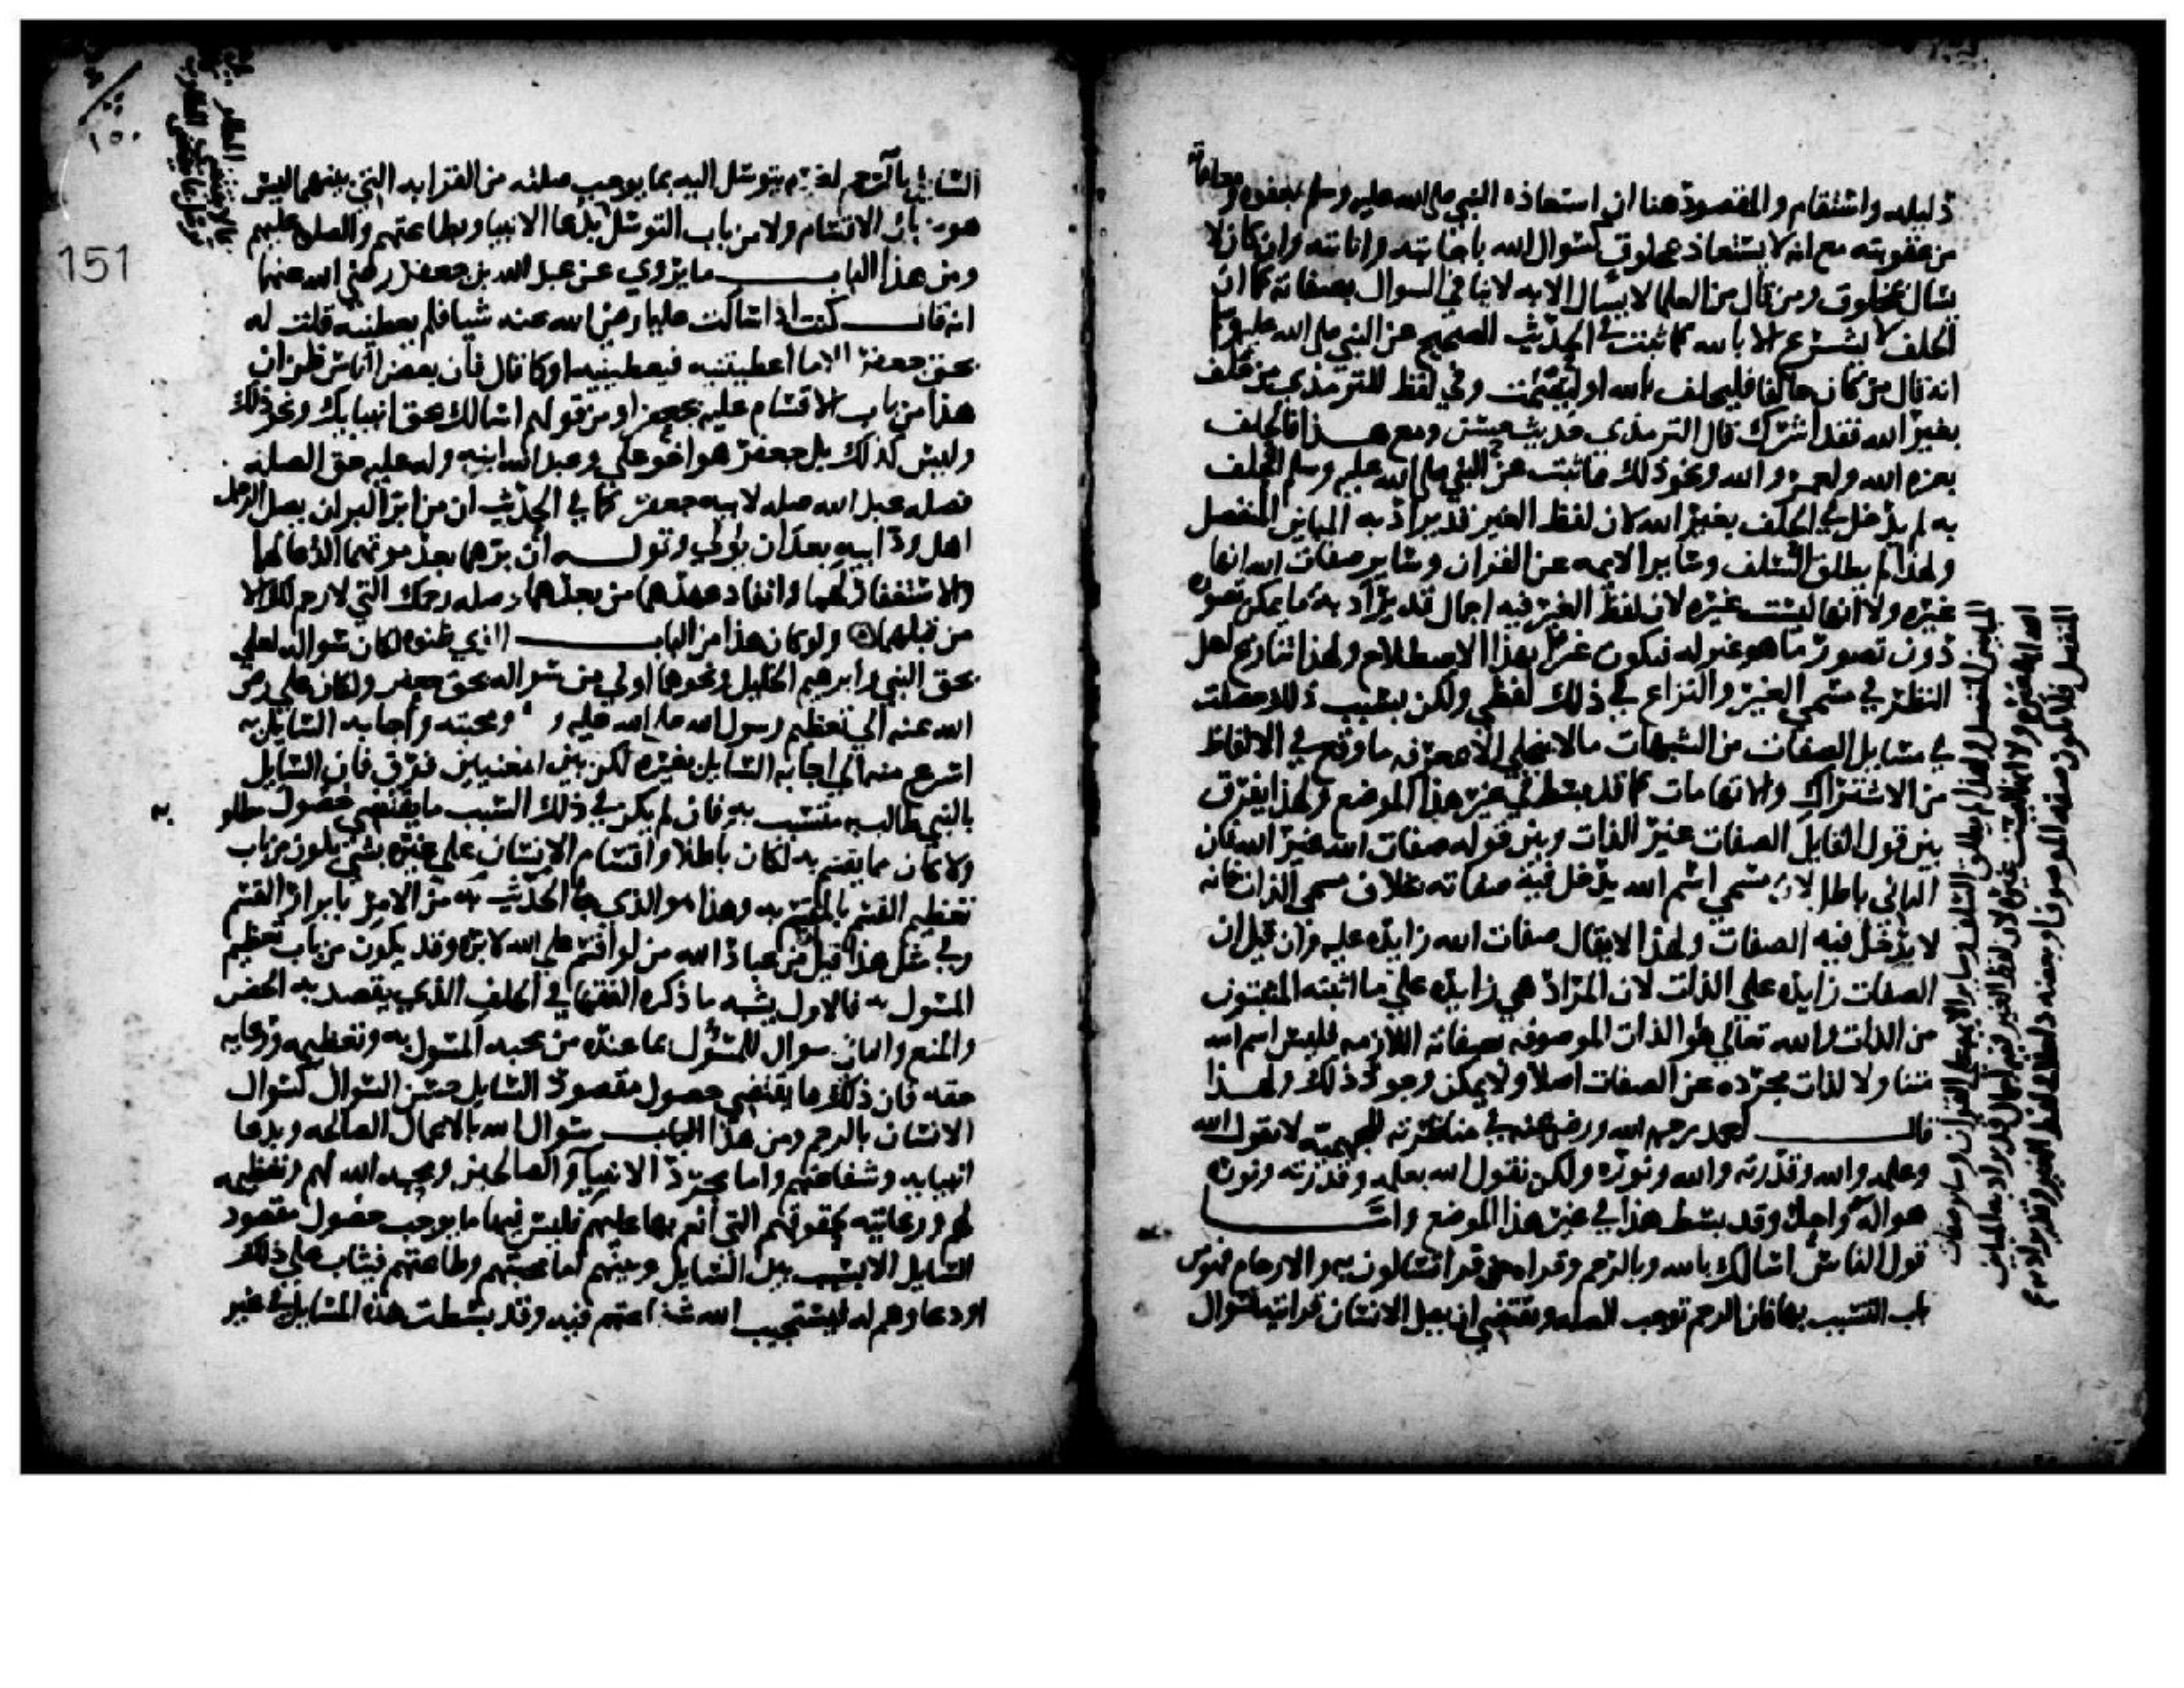 ذليله واستقام والمقصود هنا ان استعاذه النبي صلى الله عليه وسلم بعفوه ومعافاته
من عقوبته مع انه لا يستعاذ بمخلوق كسوال الله باجابته واثابته وان كان لا
يسال بمخلوق ومن قال من العلما لا يسال الا به لا ينافي السوال بصفاته كما ان
الحلف لا يشرع الا بالله كما ثبت في الحديث الصحيح عن النبي صلى الله عليه وسلم
انه قال من كان حالفا فليحلف بالله او ليصمت وفي لفظ للترمذي من حلف
بغير الله فقد اشرك قال الترمذي حديث حسن ومع هذا فالحلف
بعزه الله ولعمر الله ونحو ذلك مما ثبت عن النبي صلى الله عليه وسلم الحلف
به لم يدخل في الحلف بغير الله لان لفظ الغير قد يراد به المباين المنفصل
ولهذا لم يطلق السلف وساير الايمه عن القران وساير صفات الله انها
غيره ولا انها ليست غيره لان لفظ الغير فيه اجمال قد يراد به ما يمكن تصوره
دون تصور ما هو غير له فيكون غيرا بهذا الاصطلاح ولهذا تنازع اهل
النظر في مسمي الغير والنزاع في ذلك لفظي ولكن بسبب ذلك حصلت
في مسايل الصفات من الشبهات ما لا ينجلي الا بمعرفه ما وقع في الالفاظ
من الاشتراك والابهامات كما قد بسط في غير هذا الموضع ولهذا يفرق
بين قول القايل الصفات غير الذات وبين قوله صفات الله غير الله فان
الثاني باطل لان مسمي اسم الله يدخل فيه صفاته بخلاف مسمي الذات فانه
لا يدخل فيه الصفات ولهذا لا يقال صفات الله زايده عليه وان قيل ان
الصفات زايده علي الذات لان المراد هي زايده علي ما اثبته المثبتون
من الذات والله تعالي هو الذات الموصوفه بصفاته اللازمه فليس اسم الله
متناولا لذات مجرده عن الصفات اصلا ولا يمكن وجود ذلك ولهذا
قال احمد رحمه الله ورضي عنه في مناظرته للجهمية لا نقول الله
وعلمه والله وقدرته والله ونوره ولكن نقول الله بعلمه وقدرته ونوره
هو اله واحد وقد بسط هذا في غير هذا الموضع واما
قول الناس اسالك بالله وبالرحم وقراه من قرا تسالون به والارحام فهو من
باب التسبب بها فان الرحم توجب الصله وتقتضي ان يصل الانسان قرابته فسوال
المباين المنفصل ولهذا لم يطلق السلف وساير الايمه علي القران وساير صفات
الله انها غيره ولا انها ليست غيره لان لفظ الغير فيه اجمال قد يراد به المباين
المنفصل فلا يكون صفه الموصوف او بعضه داخلا في لفظ الغير وقد يراد به
السايل بالرحم لغيره يتوسل اليه بما يوجب صلته من القرابه التي بينهما ليس
هو من باب الاقسام ولا من باب التوسل بدعا الانبيا وبطاعتهم والصلاه عليهم
ومن هذا الباب ما يروي عن عبد الله بن جعفر رضي الله عنهما
انه قال كنت اذا سالت عليا رضي الله عنه شيا فلم يعطنيه قلت له
بحق جعفر الا ما اعطيتنيه فيعطينيه او كما قال فان بعض الناس ظن ان
هذا من باب الاقسام عليه بجعفر او من قولهم اسالك بحق انبيايك ونحو ذلك
وليس كذلك بل جعفر هو اخو علي وعبد الله ابنه وله عليه حق الصله
فصله عبد الله صله لابيه جعفر كما في الحديث ان من ابر البر ان يصل الرجل
اهل ود ابيه بعد ان يولي وقوله ان برهما بعد موتهما الدعا لهما
والاستغفار لهما وانفاذ عهدهما من بعدهما وصله رحمك التي لا رحم لك الا
من قبلهما ولو كان هذا من الباب الذي ظنوه لكان سواله لعلي
بحق النبي وابرهيم الخليل ونحوهما اولي من سواله بحق جعفر ولكان علي رضي
الله عنه الي تعظيم رسول الله صلى الله عليه و ومحبته واجابه السايل به
اسرع منه الي اجابه السايل بغيره لكن بين المعنيين فرق فان السايل
بالنبي طالب به متسبب به فان لم يكن في ذلك السبب ما يقتضي حصول مطلوبه
ولا كان مما يقسم به لكان باطلا واقسام الانسان علي غيره بشي يكون من باب
تعظيم القسم بالمقسم به وهذا هو الذي جا الحديث به من الامر بابرار القسم
وفي مثل هذا قيل من عباد الله من لو اقسم علي الله لابره وقد يكون من باب تعظيم
المسول به فالاول يشبه ما ذكره الفقها في الحلف الذي يقصد به الحض
والمنع والثاني سوال للمسؤل بما عنده من محبه المسول به وتعظيمه ورعايه
حقه فان ذلك مما يقتضي حصول مقصود السايل حسن السوال كسوال
الانسان بالرحم ومن هذا الباب سوال الله بالاعمال الصالحه وبدعا
انبيايه وشفاعتهم واما بمجرد الانبيا والصالحين ومحبه الله لهم وتعظيمه
لهم ورعايته لحقوقهم التي انعم بها عليهم فليس فيها ما يوجب حصول مقصود
السايل الا بسبب بين السايل وبينهم اما محبتهم وطاعتهم فيثاب علي ذلك
او دعاوهم له ليستجيب الله شفاعتهم فيه وقد بسطت هذه المسايل في غير
151
١٥٠